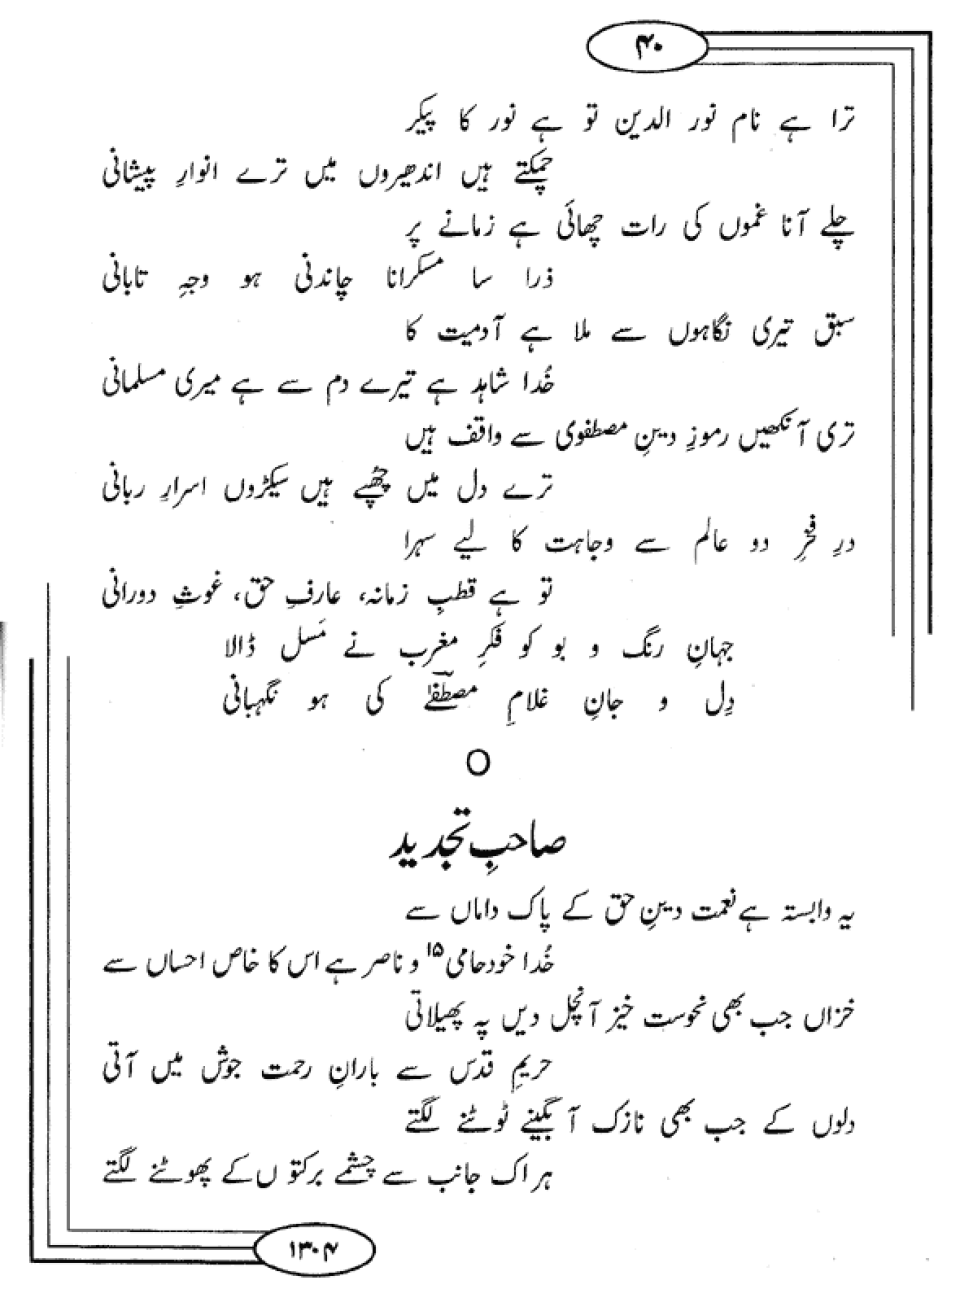 ۴۰
ترا ہے نام نور الدین تو ہے نور کا پیکر
چمکتے ہیں اندھیروں میں ترے انوارِ پیشانی
چلے آنا غموں کی رات چھائی ہے زمانے پر
ذرا سا مسکرانا چاندنی ہو وجہِ تابانی
سبق تیری نگاہوں سے ملا ہے آدمیت کا
خُدا شاہد ہے تیرے دم سے ہے میری مسلمانی
تری آنکھیں رموزِ دینِ مصطفوی سے واقف ہیں
ترے دل میں چھُپے ہیں سیکڑوں اسرارِ ربانی
درِ فخرِ دو عالم سے وجاہت کا لیے سہرا
تو ہے قطبِ زمانہ، عارفِ حق، غوثِ دورانی
جہانِ رنگ و بو کو فکرِ مغرب نے مَسل ڈالا
دِل و جانِ غلامِ مصطفٰےؐ کی ہو نگہبانی
O
صاحبِ تجدید
یہ وابستہ ہے نعمت دینِ حق کے پاک داماں سے
خُدا خود حامی۱۵ و ناصر ہے اس کا خاص احساں سے
خزاں جب بھی نحوست خیز آنچل دیں پہ پھیلاتی
حریمِ قدس سے بارانِ رحمت جوش میں آتی
دلوں کے جب بھی نازک آبگینے ٹوٹنے لگتے
ہر اک جانب سے چشمے برکتوں کے پھوٹنے لگتے
۱۳۰۴